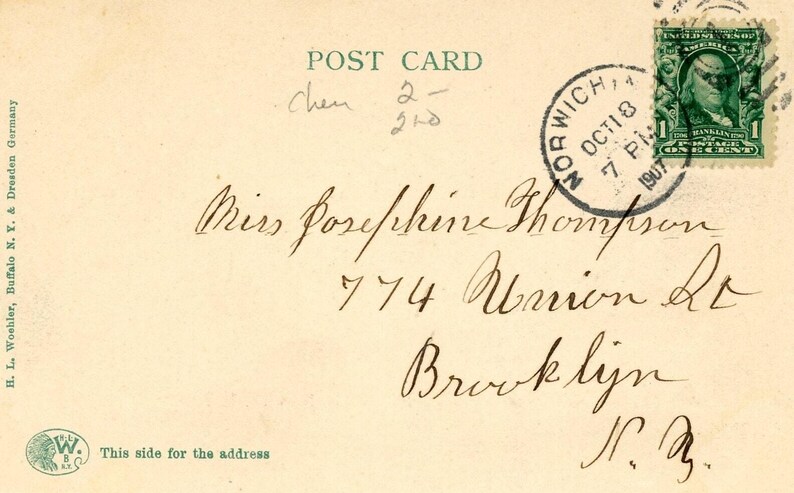 POST CARD
2-
2nd
NORWICH,
OCT 18
7 PM
1907
SERIES 1902
UNITED STATES OF
AMERICA
1 FRANKLIN 1
1706 1790
POSTAGE
ONE CENT
Miss Josephine Thompson
774 Union St
Brooklyn
N. Y.
H. L. Woehler, Buffalo N. Y. & Dresden Germany
H.L.
W.
B
N.Y.
This side for the address